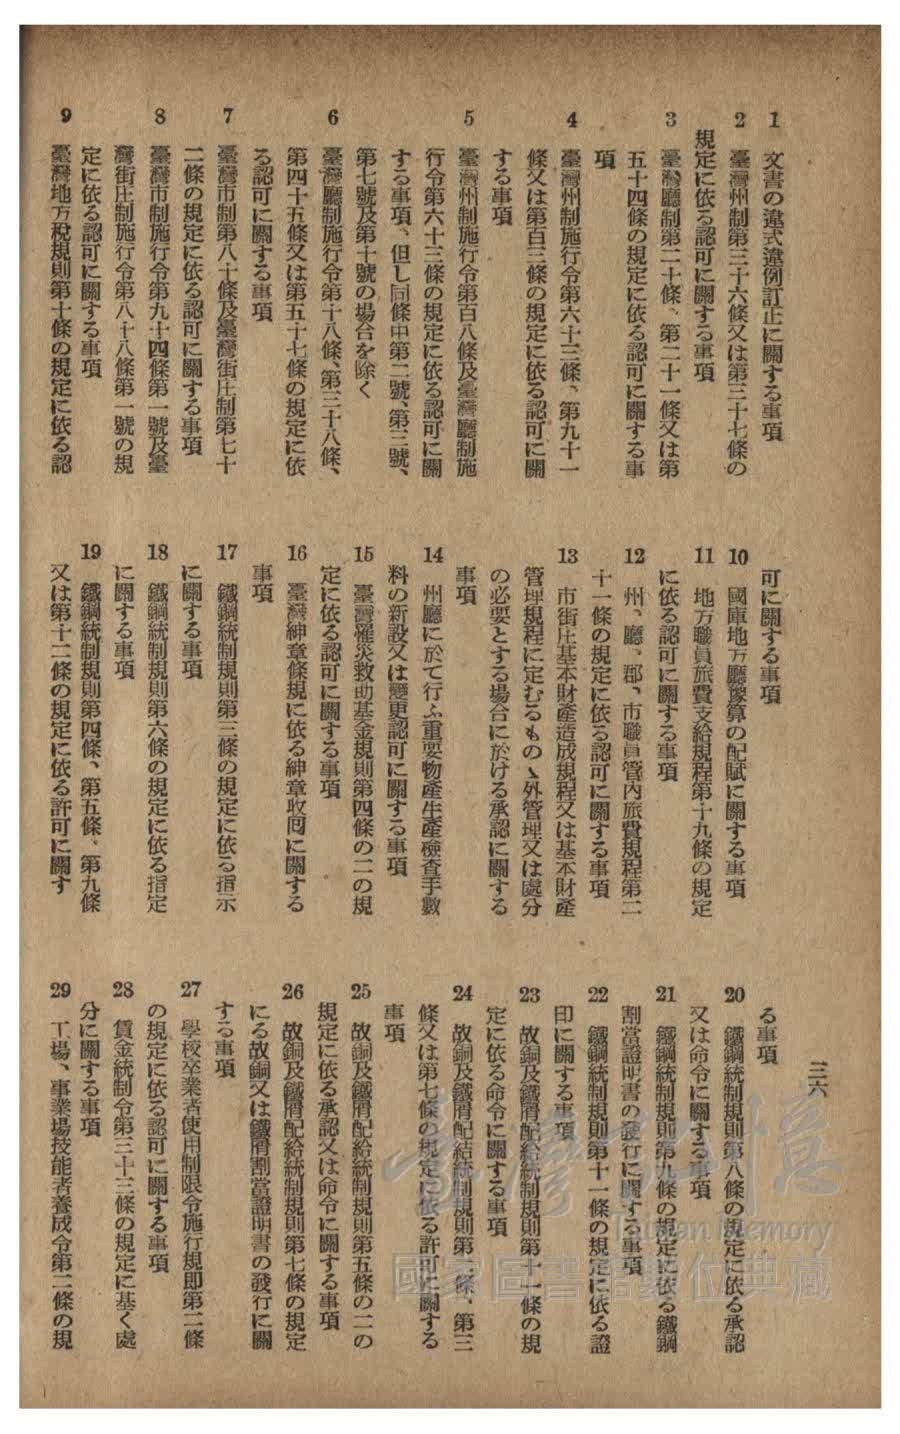 三六
1 文書の違式違例訂正に關する事項
2 臺灣州制第三十六條又は第三十七條の
規定に依る認可に關する事項
3 臺灣廳制第二十條、第二十一條又は第
五十四條の規定に依る認可に關する事
項
4 臺灣州制施行令第六十三條、第九十一
條又は第百三條の規定に依る認可に關
する事項
5 臺灣州制施行令第百八條及臺灣廳制施
行令第六十三條の規定に依る認可に關
する事項、但し同條中第二號、第三號、
第七號及第十號の場合を除く
6 臺灣廳制施行令第十八條、第三十八條、
第四十五條又は第五十七條の規定に依
る認可に關する事項
7 臺灣市制第八十條及臺灣街庄制第七十
二條の規定に依る認可に關する事項
8 臺灣市制施行令第九十四條第一號及臺
灣街庄制施行令第八十八條第一號の規
定に依る認可に關する事項
9 臺灣地方稅規則第十條の規定に依る認
可に關する事項
10 國庫地方廳豫算の配賦に關する事項
11 地方職員旅費支給規程第十九條の規定
に依る認可に關する事項
12 州、廳、郡、市職員管內旅費規程第二
十一條の規定に依る認可に關する事項
13 市街庄基本財產造成規程又は基本財產
管理規程に定むるもの丶外管理又は處分
の必要とする場合に於ける承認に關する
事項
14 州廳に於て行ふ重要物產生產檢查手數
料の新設又は變更認可に關する事項
15 臺灣罹災救助基金規則第四條の二の規
定に依る認可に關する事項
16 臺灣紳章條規に依る紳章收囘に關する
事項
17 鐵鋼統制規則第三條の規定に依る指示
に關する事項
18 鐵鋼統制規則第六條の規定に依る指定
に關する事項
19 鐵鋼統制規則第四條、第五條、第九條
又は第十二條の規定に依る許可に關す
る事項
20 鐵鋼統制規則第八條の規定に依る承認
又は命令に關する事項
21 鐵鋼統制規則第九條の規定に依る鐵鋼
割當證明書の發行に關する事項
22 鐵鋼統制規則第十一條の規定に依る證
印に關する事項
23 故銅及鐵屑配給統制規則第十一條の規
定に依る命令に關する事項
24 故銅及鐵屑配結統制規則第二條、第三
條又は第七條の規定に依る許可に關する
事項
25 故銅及鐵屑配給統制規則第五條の二の
規定に依る承認又は命令に關する事項
26 故銅及鐵屑配給統制規則第七條の規定
にる故銅又は鐵屑割當證明書の發行に關
する事項
27 學校卒業者使用制限令施行規卽第二條
の規定に依る認可に關する事項
28 賃金統制令第三十三條の規定に基く處
分に關する事項
29 工場、事業場技能者養成令第二條の規
臺灣記憶
Taiwan Memory
國家圖書館數位典藏